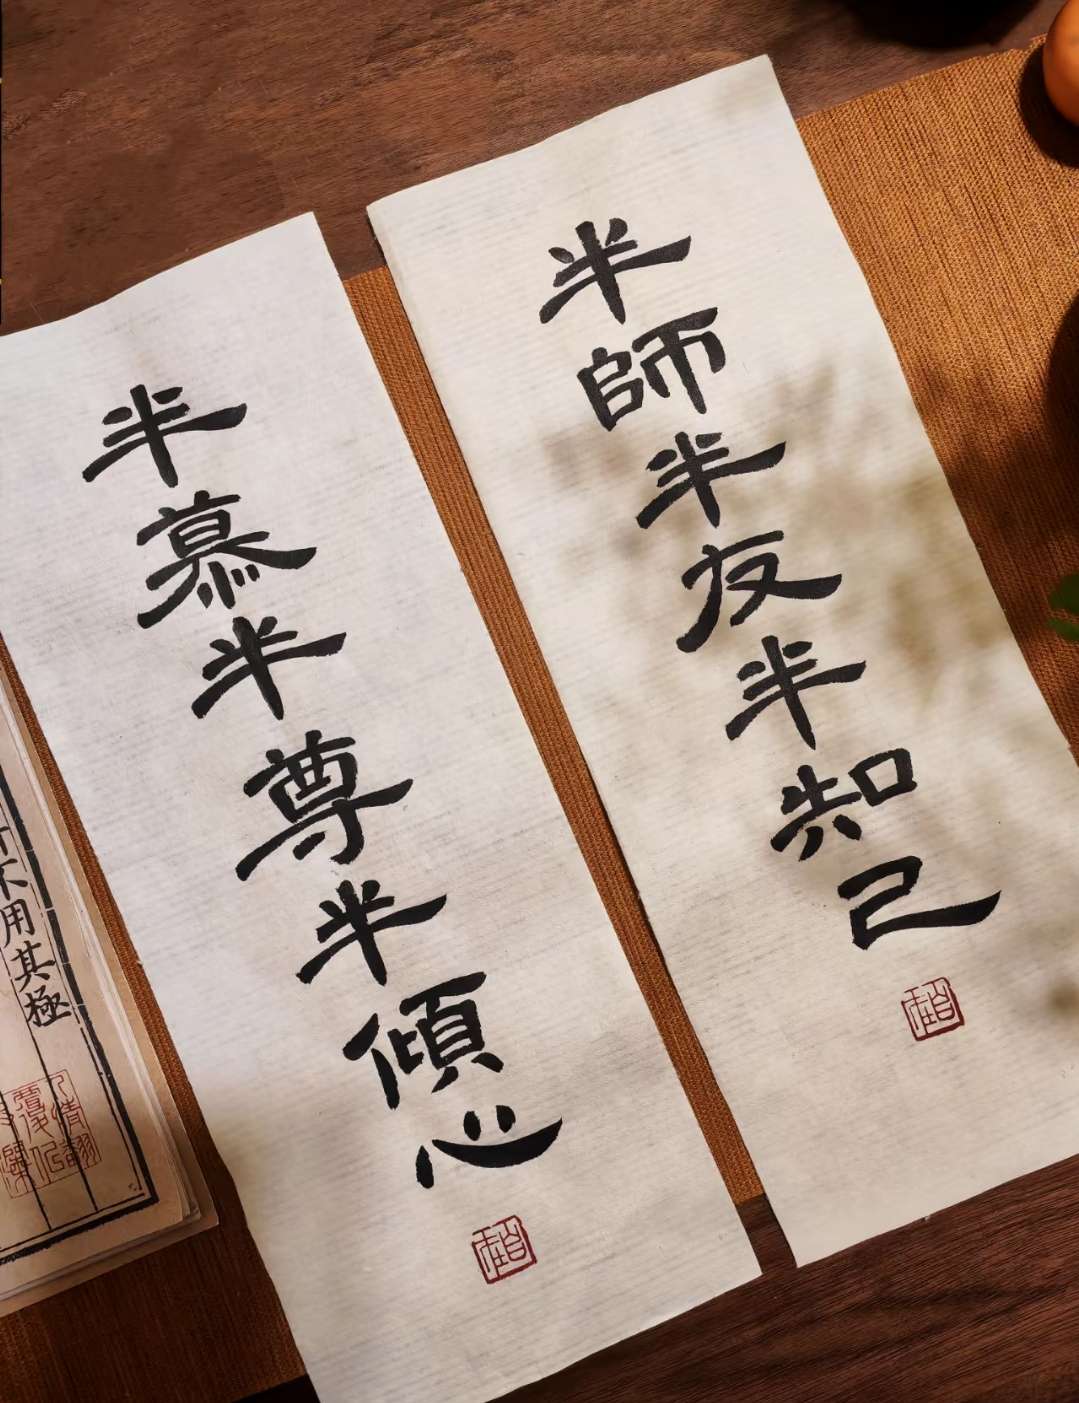 半師半友半知己
半慕半尊半傾心
不用其極